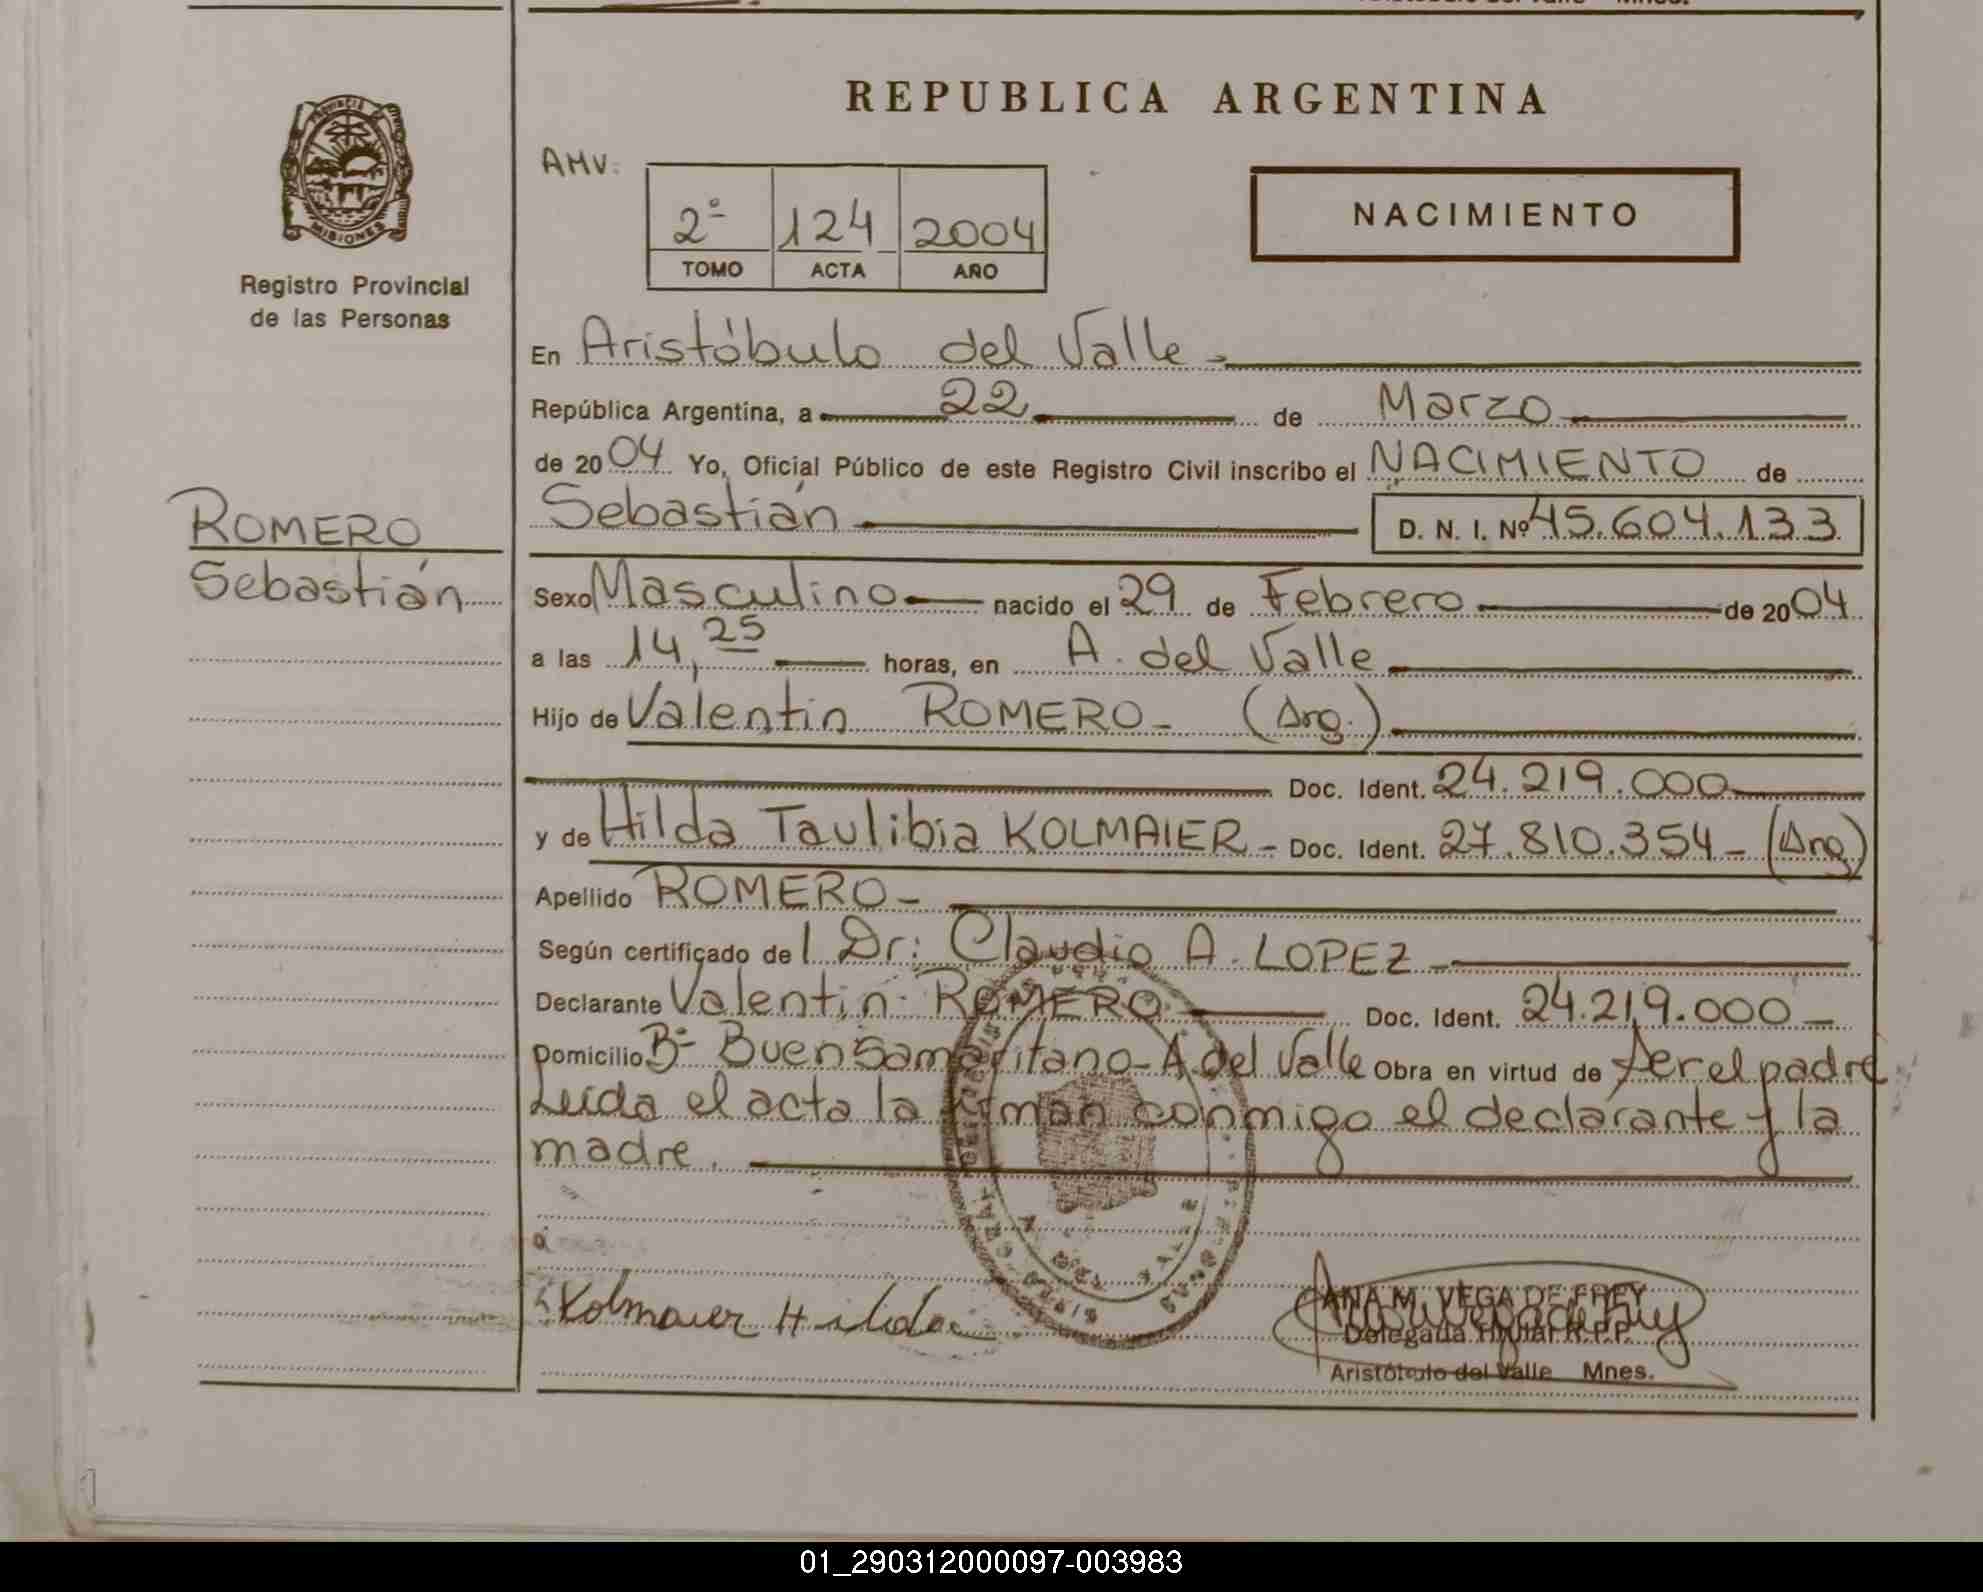 REPUBLICA ARGENTINA
PROVINCIA DE
MISIONES
Registro Provincial
de las Personas
AMV:
2º 124 2004
TOMO ACTA AÑO
NACIMIENTO
En Aristóbulo del Valle.
República Argentina, a 22 de Marzo
de 2004 Yo, Oficial Público de este Registro Civil inscribo el NACIMIENTO de
Sebastián D. N. I. Nº 45.604.133
ROMERO
Sebastián
Sexo Masculino nacido el 29 de Febrero de 2004
a las 14,25 horas, en A. del Valle
Hijo de Valentin ROMERO- (Arg.)
Doc. Ident. 24.219.000
y de Hilda Taulibia KOLMAIER- Doc. Ident. 27.810.354- (Arg)
Apellido ROMERO-
Según certificado del Dr: Claudio A. LOPEZ-
Declarante Valentin ROMERO Doc. Ident. 24.219.000-
Domicilio Bº Buen Samaritano-A del Valle Obra en virtud de ser el padre
Leída el acta la firman conmigo el declarante y la
madre.
Kolmaier Hilda
ANA M. VEGA DE FREY
Delegada Titular R.P.P.
Aristóbulo del Valle Mnes.
01_290312000097-003983